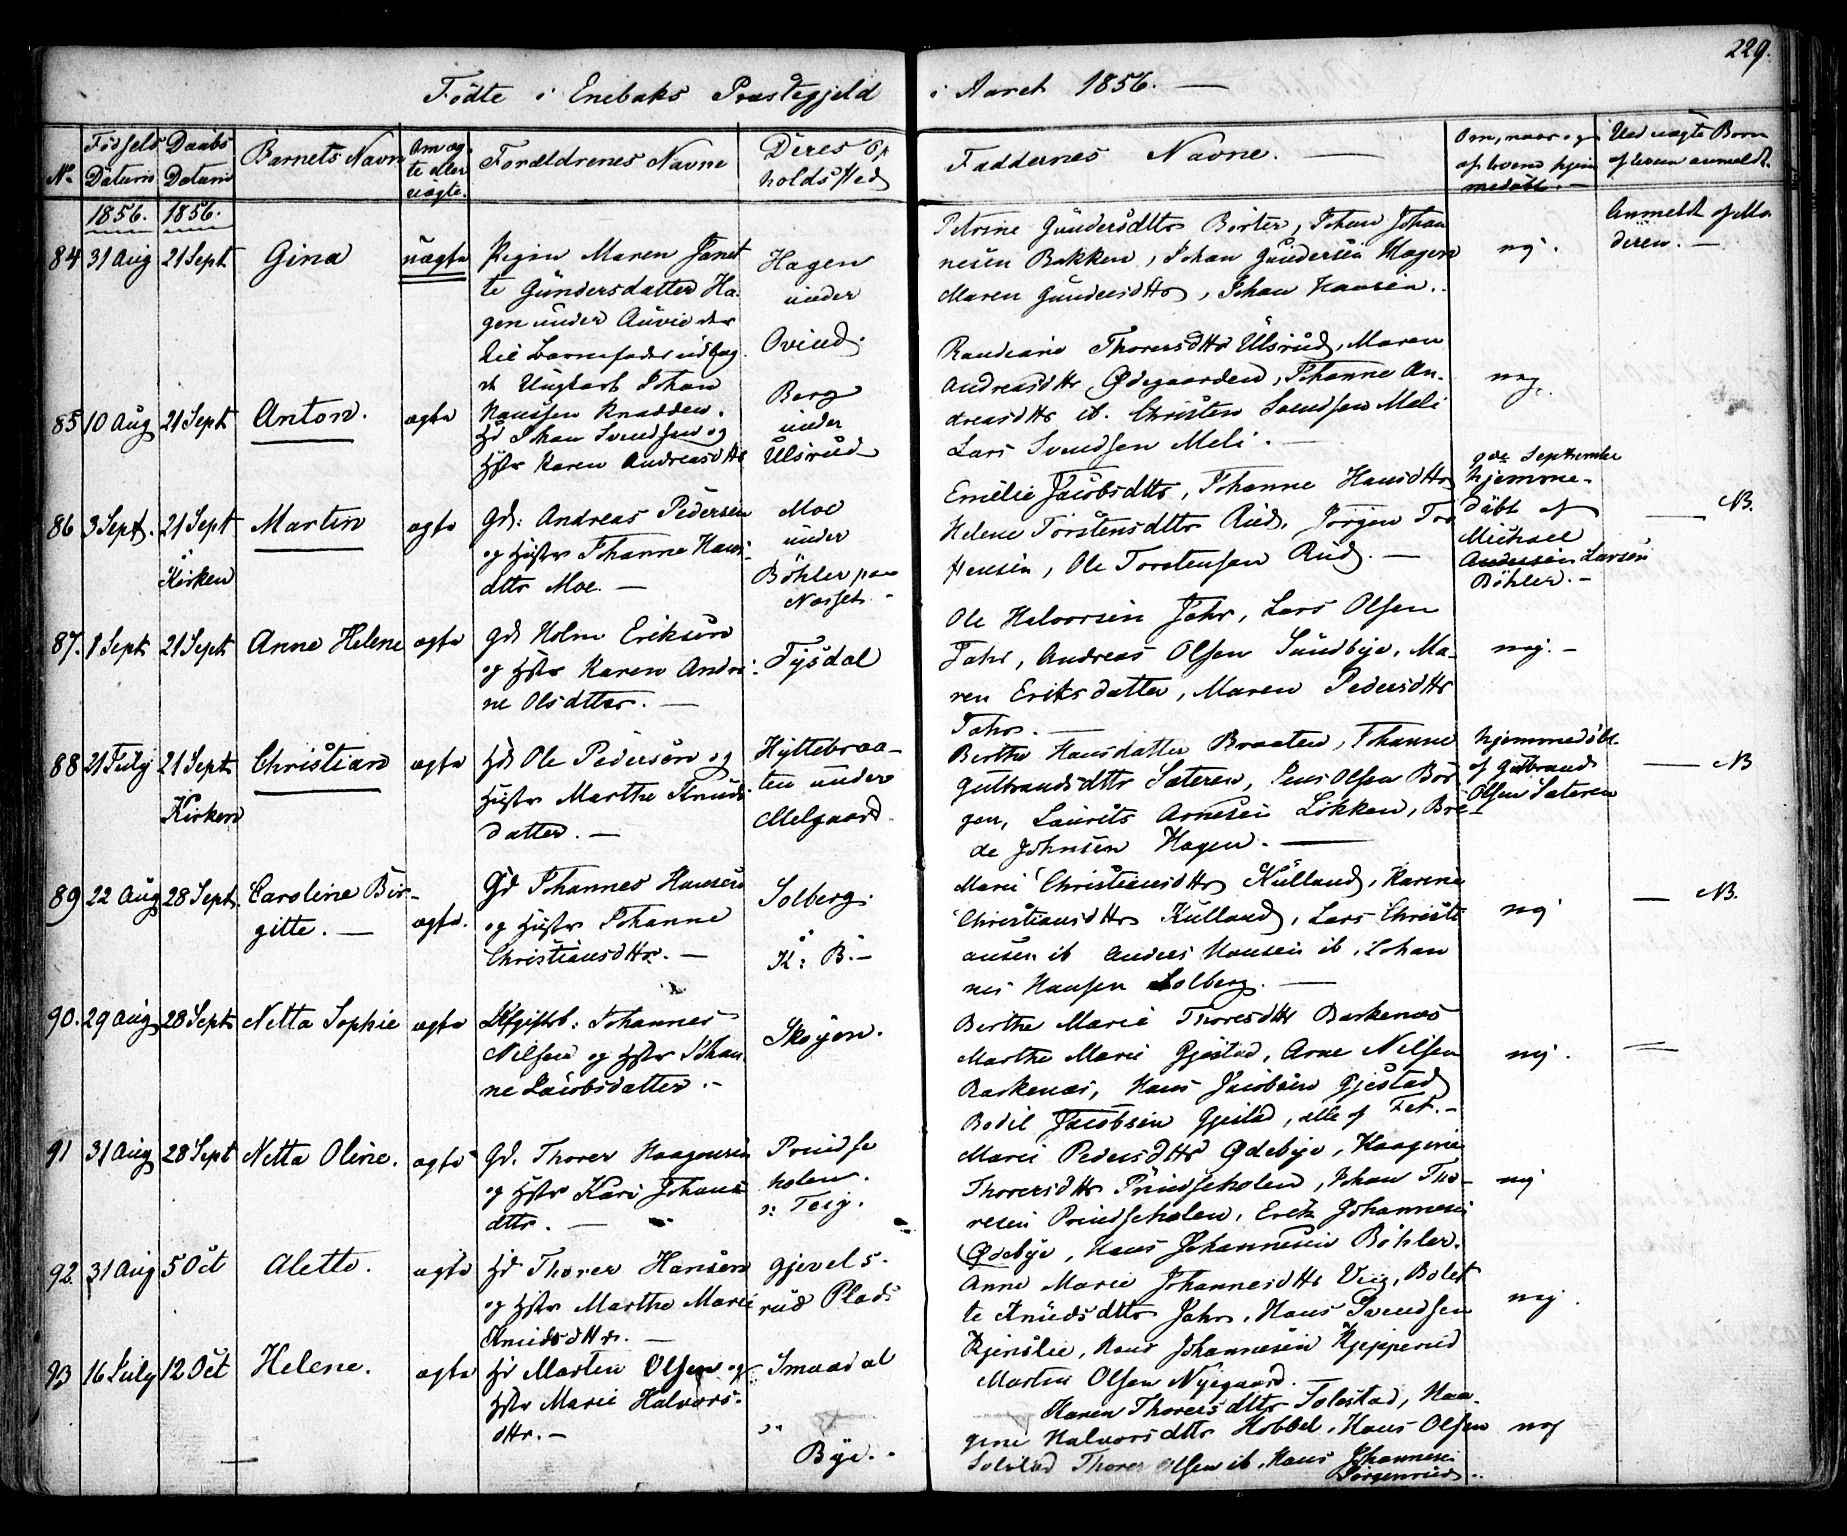 229.
Födte i Enebaks Præstegjeld i Aaret 1856. —
No. Födsels Datum Daabs Datum Barnets Navn Om æg-te eller uægte. Forældrenes Navne Deres Op holds Sted
Faddernes Navne. — Om, naar og af hvem hjem medöbt. — Ved uægte Börn af hvem anmeldt.
1856. 1856.
84 31 Aug 21 Sept Gina uægte Pigen Maren Janet
te Gundersdatter Ha-
gen under
til Barnefader udlag
t Ungkarl Johan
Hanssen Knadden.
Hagen
under
Ovind.
Petrine Gundersdttr Börter, Johan Johan
nesen Bakken, Johan Gundersen Hagen
Maren Gundersdttr, Johan Hansen.
nej.
Anmeldt af Mo
deren. —
85 10 Aug 21 Sept Anton. ægte Hd Johan Svendsen og
Hstr Karen Andreasdttr
Berg
under
Ulsrud
Randiane Thorersdttr Ulsrud, Maren
Andreasdttr Ödegaarden, Johanne An-
dreasdttr ib. Christen Svendsen Meli
Lars Svendsen Meli. —
nej.
86 3 Sept. 21 Sept Kirken Martin ægte Gd: Andreas Pedersen
og Hustr Johanne Hans
dttr Moe. —
Moe
under
Böhler paa
Næsset. -
Emilie Jacobsdttr, Johanne Hansdttr
Helene Torstensdttr Rud, Jörgen Tor
stensen, Ole Torstensen Rud. —
September
hjemme-
döbt af
Michael
Andersen Larsen
Böhler. -
— NB.
87. 1 Sept 21 Sept Anne Helene ægte Gd Holm Eriksen
og Hstr Karen Andri
ne Olsdtter. —
Tysdal
Ole Halvorsen Jahr, Lars Olsen
Jahr, Andreas Olsen Sundbye, Ma-
ren Eriksdatter, Maren Pedersdttr
Jahr. —
nej. -
88 21 July 21 Sept Kirken Christian ægte Hd Ole Pedersen og
Hustr Marthe Knuds
datter. —
Hyttebraa-
ten under
Melgaard.
Berthe Hansdatter Braaten, Johanne
Gulbrandsdttr Sæteren, Jens Olsen Bör
gen, Laurits Arnesen Lökken, Bre-
de Johnsen Hagen. —
hjemmedöbt
af Gulbrand
Olsen Sæteren
— NB
89 22 Aug 28 Sept. Caroline Bir-
gitte. — ægte. Gd Johannes Hansen
og Hustr Johanne
Christiansdttr. —
Solberg.
K: B. -
Marie Christiansdttr Kulland, Karine
Christiansdttr Kulland, Lars Christi
ansen ib Anders Hansen ib, Johan
nes Hansen Solberg. —
nej
— NB.
90. 29 Aug 28 Sept Netta Sophie ægte Johannes
Nilsen og Hstr Johan
ne Jacobsdatter. -
Skøyen.
Berthe Marie Thoresdttr Barkenæs
Marthe Marie Gjestad, Arne Nilsen
Barkenæs, Hans Jacobsen Gjestad
Bodil Jacobsen Gjestad, alle af Fet. -
nej.
—
91 31 Aug 28 Sept Netta Oline. ægte Gd. Thorer Haagensen
og Hstr Kari Johans
dttr. —
Prindse
holen.
n: Teig.
Marie Pedersdttr Ödebye, Haagine
Thorersdttr Prindseholen, Johan Tho-
resen Prindseholen, Erik Johannesen
Ödebye, Hans Johannesen Böhler.
nej
92. 31 Aug 5 Oct Alette. ægte Hd Thorer Hansen
og Hstr Marthe Marie
Knudsdttr. —
Gjevels-
rud Plads
Anne Marie Johannesdttr Viig, Bolet
te Knudsdttr Jahr, Hans Svendsen
Kjenslie, Hans Johannesen
Martin Olsen Nygaard.
nej.
93 16 July 12 Oct Helene. ægte Hd Martin Olsen og
Hstr Marie Halvors-
dttr. -
Smaadal
"
Bye. -
Karen Thorersdttr Solstad, Haa-
gine Halvorsdttr Hobbel, Hans Olsen
Solstad Thorer Olsen ib. Hans Johannesen
nej